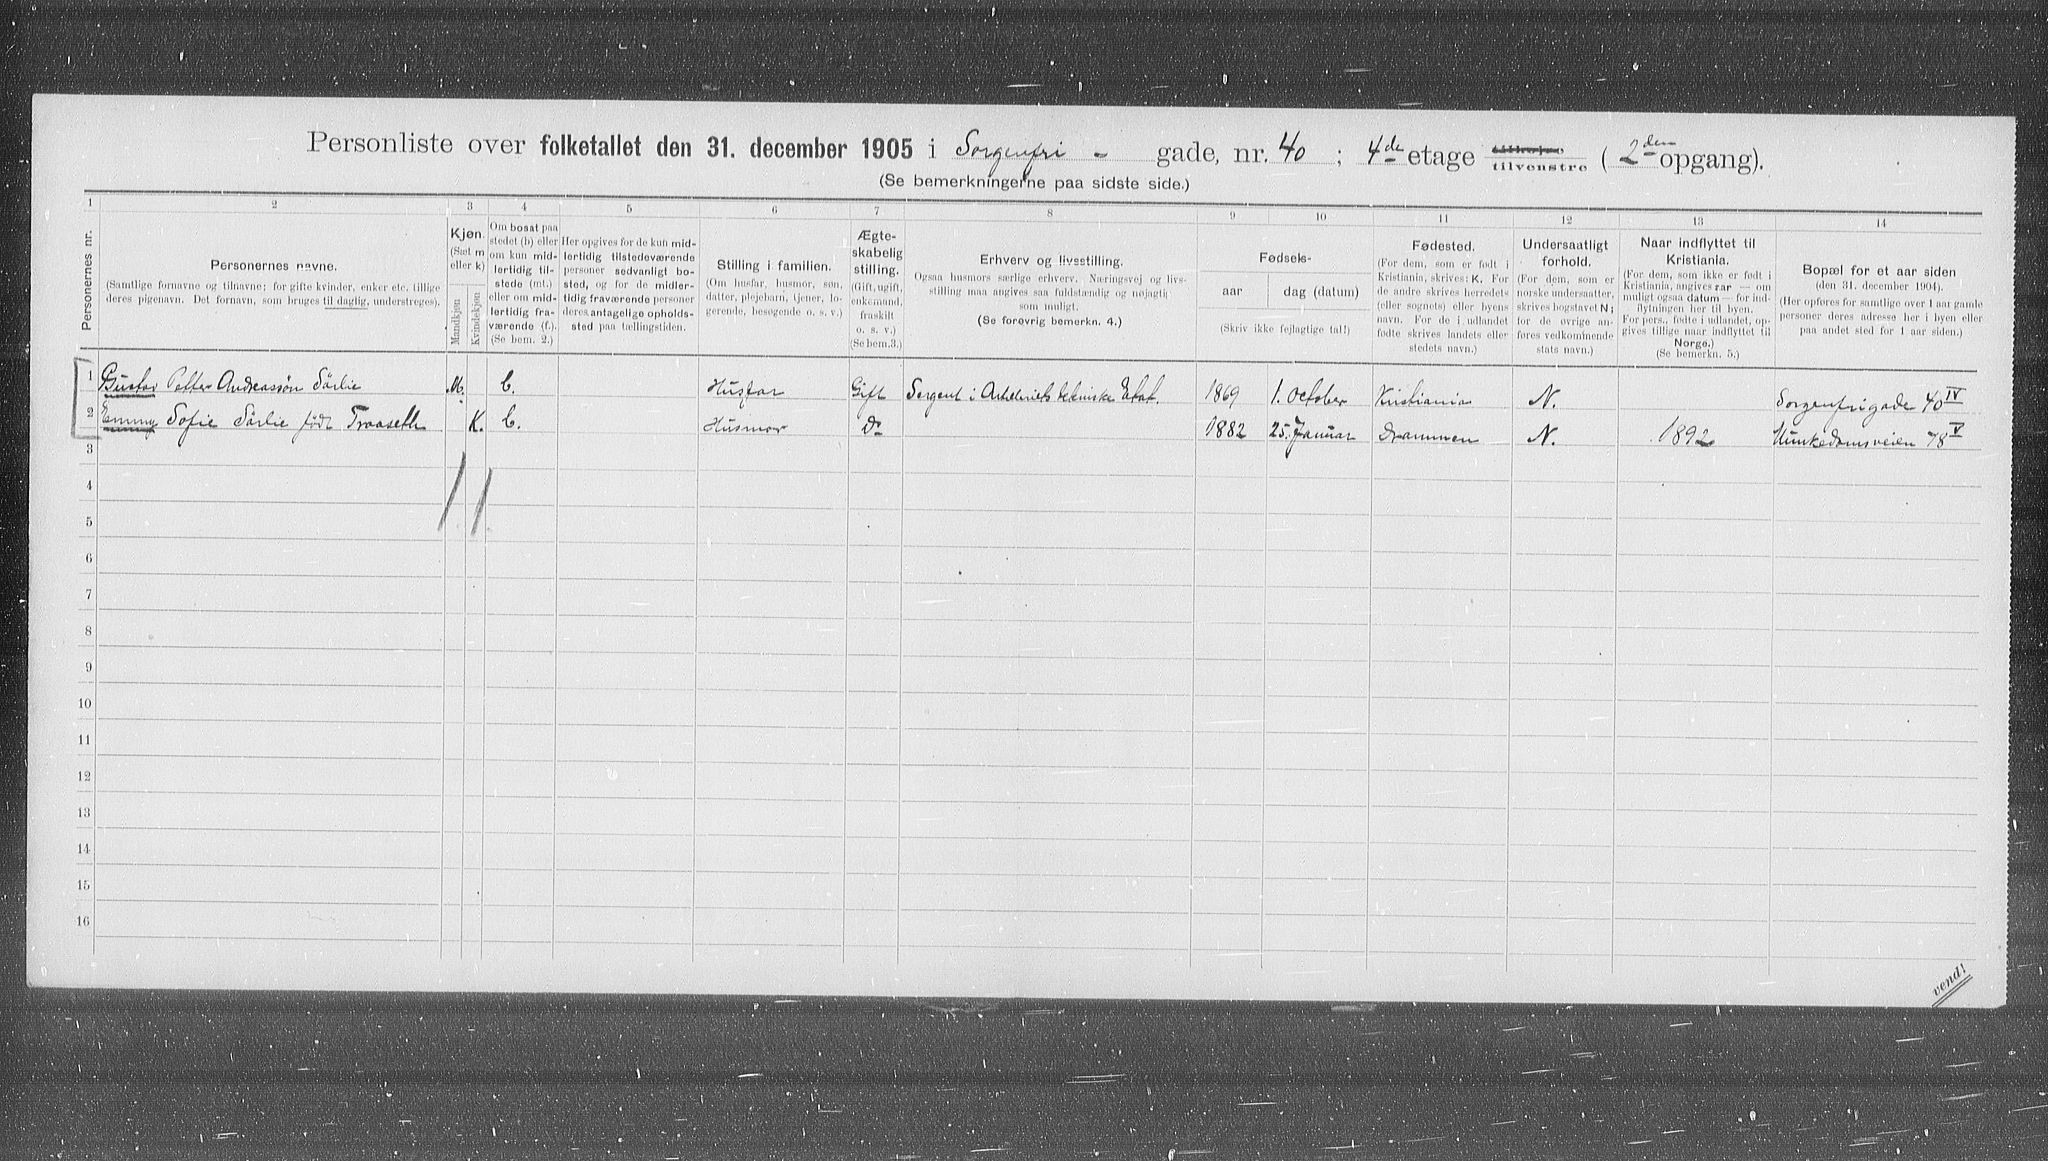 Personliste over folketallet den 31. december 1905 i Sorgenfri - gade, nr. 40 ; 4de etage tilhøire tilvenstre ( 2den opgang).
(Se bemerkningerne paa sidste side.)
1 2 3 4 5 6 7 8 9 10 11 12 13 14
Personernes nr.
Personernes navne.
(Samtlige fornavne og tilnavne; for gifte kvinder, enker etc. tillige
deres pigenavn. Det fornavn, som bruges til daglig, understreges).
Kjøn.
(Sæt m
eller k)
Mandkjøn
Kvindekjøn
Om bosat paa
stedet (b) eller
om kun mid-
lertidig til-
stede (mt.)
eller om mid-
lertidig fra-
værende (f.).
(Se bem. 2.)
Her opgives for de kun mid-
lertidig tilstedeværende
personer sedvanligt bo-
sted, og for de midler-
tidig fraværende personer
deres antagelige opholds-
sted paa tællingstiden.
Stilling i familien.
(Om husfar, husmor, søn,
datter, plejebarn, tjener, lo-
gerende, besøgende o. s. v.)
Ægte-
skabelig
stilling.
(Gift, ugift,
enkemand,
fraskilt
o. s. v.)
(Se bem.3.)
Erhverv og livsstilling.
Ogsaa husmors særlige erhverv. Næringsvej og livs-
stilling maa angives saa fuldstændig og nøjagtig
som muligt.
(Se forøvrig bemerkn. 4.)
Fødsels-
aar
dag (datum)
(Skriv ikke fejlagtige tal!)
Fødested.
(For dem, som er født i
Kristiania, skrives: K. For
de andre skrives herredets
(eller sognets) eller byens
navn. For de i udlandet
fødte skrives landets eller
stedets navn.)
Undersaatligt
forhold.
(For dem, som er
norske undersaatter,
skrives bogstavet N;
for de øvrige an-
føres vedkommende
stats navn.)
Naar indflyttet til
Kristiania.
(For dem, som ikke er født i
Kristiania, angives aar — om
muligt ogsaa datum — for ind-
flytningen her til byen.
For pers., fødte i udlandet, op-
gives tillige naar indflyttet til
Norge.)
(Se bemerkn. 5.)
Bopæl for et aar siden
(den 31. december 1904).
(Her opføres for samtlige over 1 aar gamle
personer deres adresse her i byen eller
paa andet sted for 1 aar siden.)
1 Gustav Petter Andreassøn Sörlie M. b. Husfar Gift Sergent i Artilleriets tekniske Etat. 1869 1. October Kristiania N. Sorgenfrigade 40 IV
2 Emmy Sofie Sörlie född Traaseth K. b. Husmor Do 1882 25. Januar Drammen N. 1892 Munkedamsveien 78 V
3
4
5
6
7
8
9
10
11
12
13
14
15
16
vend!